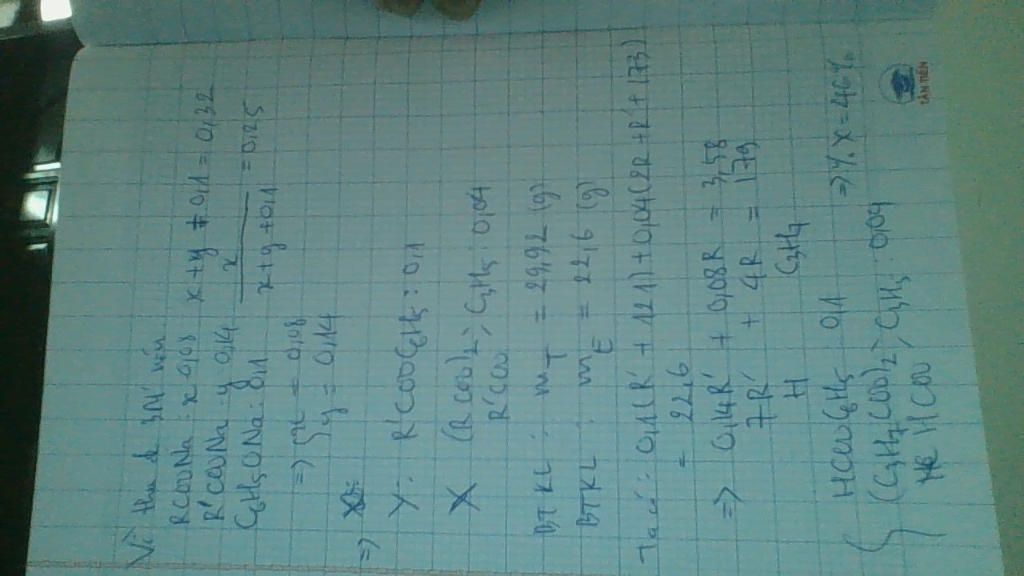 Vì thu đc 3 M' nên
RCOONa: x 0,08 x+y+0,1 = 0,32
R'COONa y 0,14 x / x+y+0,1 = 0,25
C6H5ONa: 0,1
=> { x = 0,08
y = 0,14
=>
Y: R'COOC6H5: 0,1
X (RCOO)2 > C3H5: 0,04
R'COO
BTKL: mT = 29,92 (g)
BTKL: mE = 22,6 (g)
Ta có: 0,1(R' + 121) + 0,04(2R + R' + 173)
= 22,6
=> 0,14R' + 0,08R = 3,58
7R' + 4R = 179
H C3H7
{ HCOOC6H5: 0,1 => % X = 46%
(C3H7COO)2 > C3H5: 0,04
HCOO
TÂN TIẾN